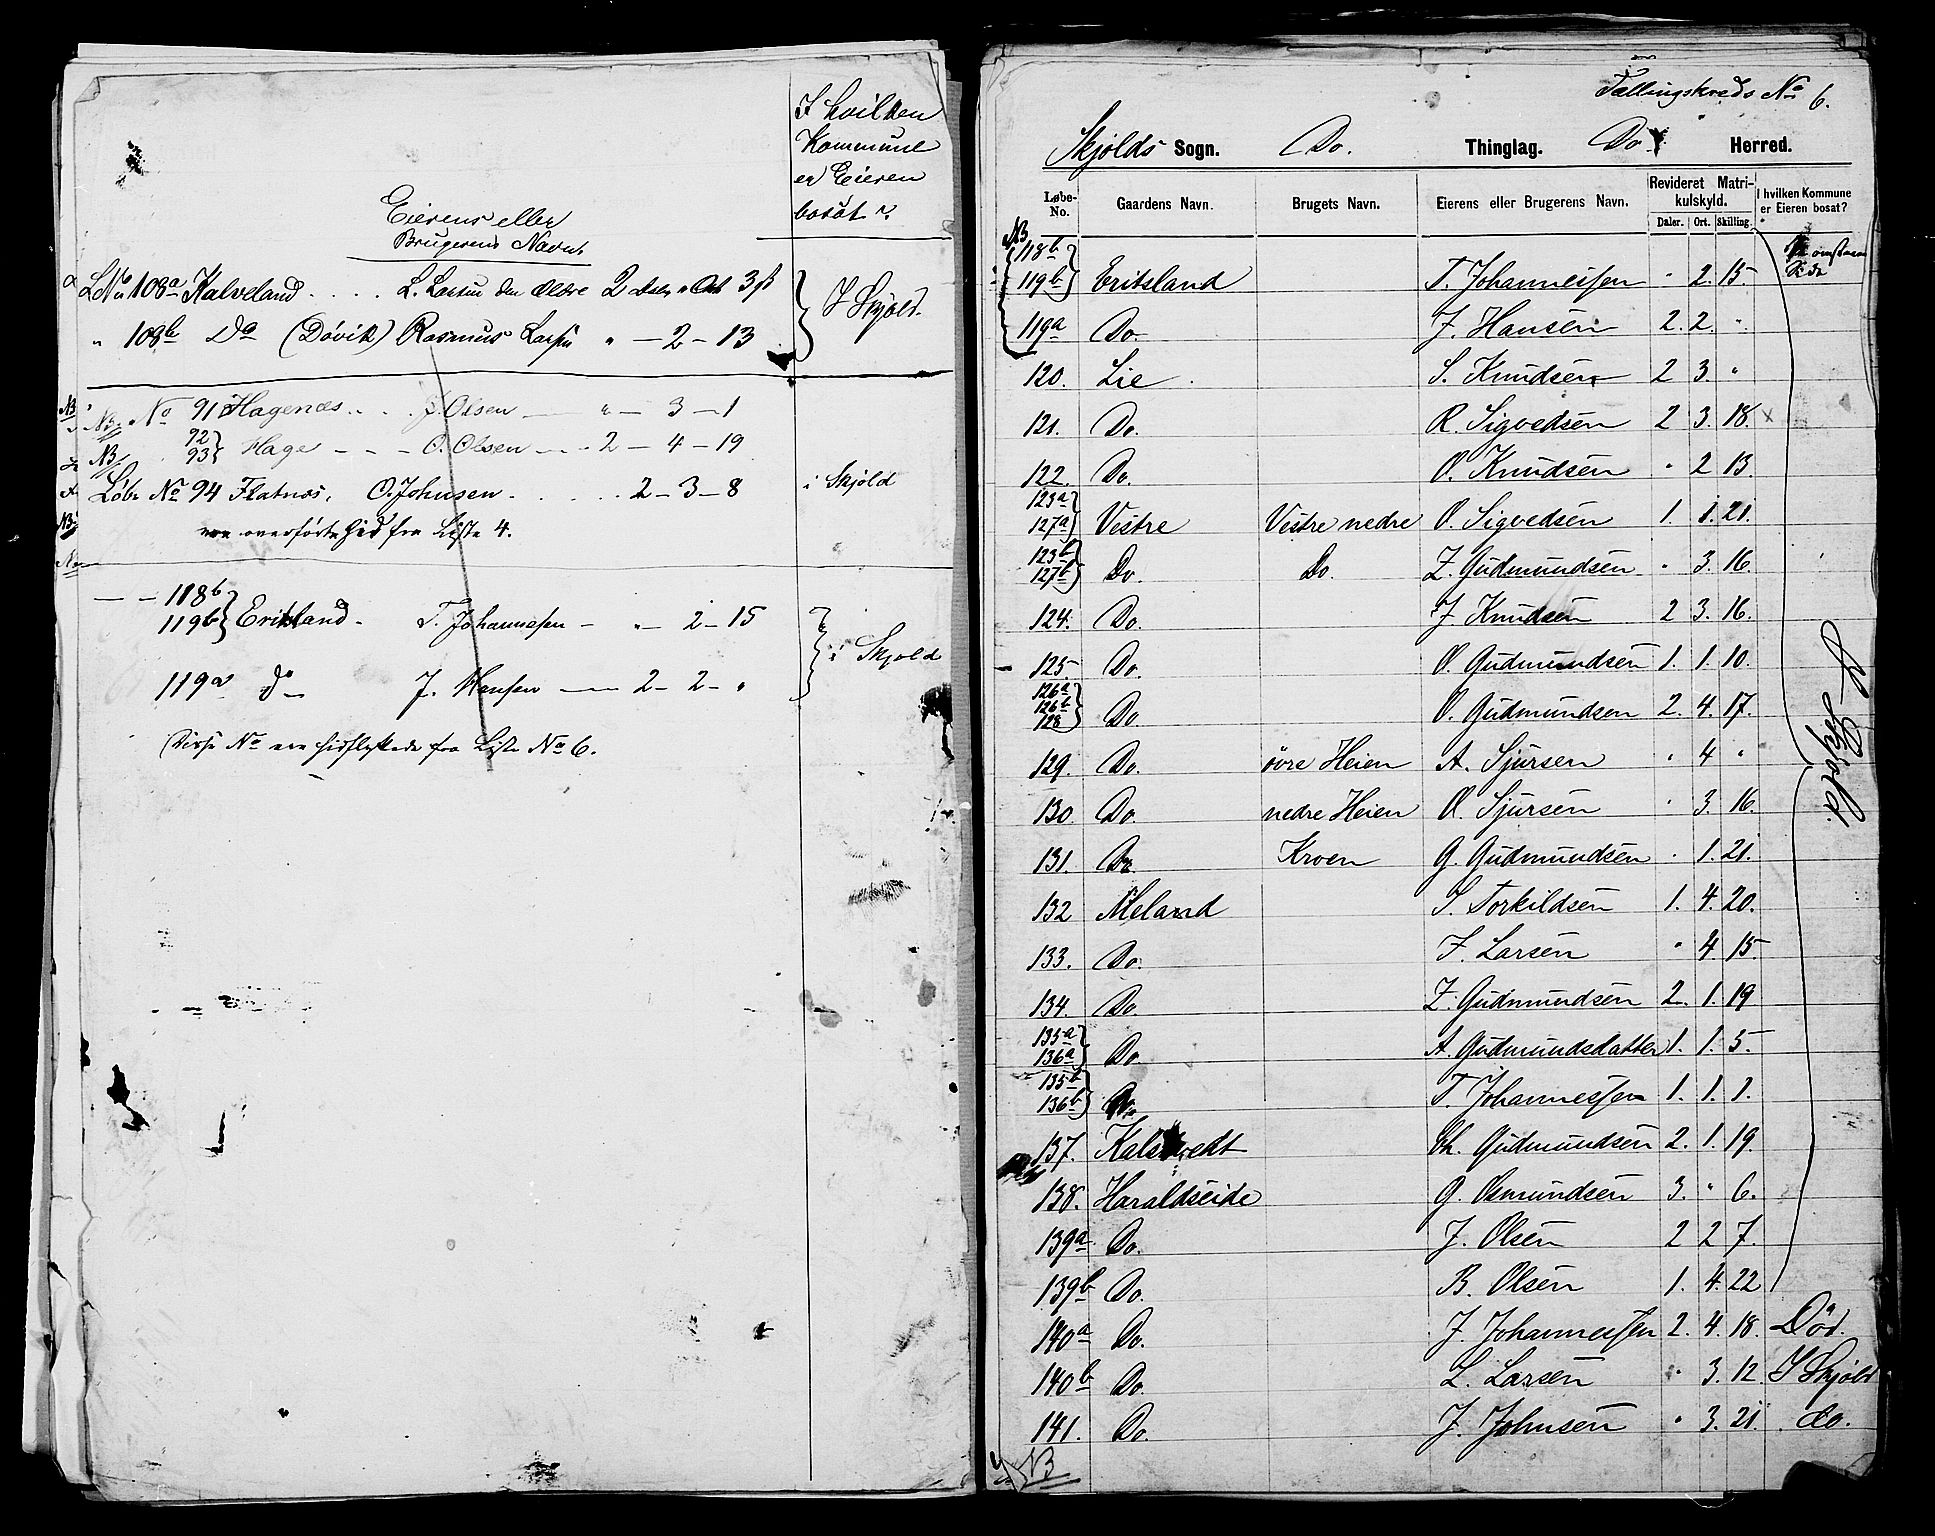 I hvilken
Kommune
er Eieren
bosat?
Eierens eller
Brugerens Navn.
LNo 108a Kalveland .... L. Larsen den Ældre 2 Daler " Ort 3 ß
" 108b Do (Dövik) Rasmus Larsen " — 2 — 13
I Skjold.
NB. No 91 Hagenæs . . . J. Olsen — " — 3 — 1
NB 92
93 Hage — — — O. Olsen — 2 — 4 — 19
Löbe No 94 Flatnæs. O. Johnsen . . . . . 2 — 3 — 8 i Skjold
ere overförte hid fra Liste 4.
— — 118b
119b Eriksland - T. Johannesen — " — 2 — 15
i Skjold
119a do J. Hansen — 2 — 2 — "
Disse No ere hidflyttede fra Liste No 6.
Tællingskreds No 6.
Skjolds Sogn. Do. Thinglag. Do. Herred.
Løbe-No. Gaardens Navn. Brugets Navn. Eierens eller Brugerens Navn. Revideret Matrikulskyld. I hvilken Kommune er Eieren bosat?
Daler. Ort. Skilling.
NB
118b
119b Eriksland T. Johannessen " 2. 15.
119a Do. J. Hansen 2. 2. "
120. Lie S. Knudsen 2 3. "
121. Do. R. Sigvedsen 2 3. 18. x
122. Do. O. Knudsen " 2 13.
123a
127a Vestre Vestre nedre O. Sigvedsen 1. 1. 21.
123b
127b Do. Do. Z. Gudmundsen " 3. 16.
124. Do. J. Knudsen 2 3. 16.
125. Do. O. Gudmundsen 1. 1. 10.
126a
126b
128 Do. O. Gudmundsen 2. 4. 17.
129. Do. övre Heien A. Sjursen " 4 "
130. Do. nedre Heien O. Sjursen " 3. 16.
131. Do. Kroen G. Gudmundsen " 1. 21.
132 Meland S. Torkildsen 1. 4. 20.
133. Do. J. Larsen " 4 15.
134. Do. Z. Gudmundsen 2. 1. 19
135a
136a Do. A. Gudmundsdatter 1. 1. 5.
135b
136b Do. T. Johannessen 1. 1. 1.
137. Gudmundsen 2. 1. 19.
138. Haraldseide G. Osmundsen 3. " 6.
139a Do. J. Olsen 2 2 7.
139b Do. B. Olsen 1. 4. 22
I Skjold.
140a Do. J. Johannessen 2. 4. 18. Död.
140b Do. L. Larsen " 3. 12 I Skjold
141. Do. J. Johnsen " 3. 21. do.
NB